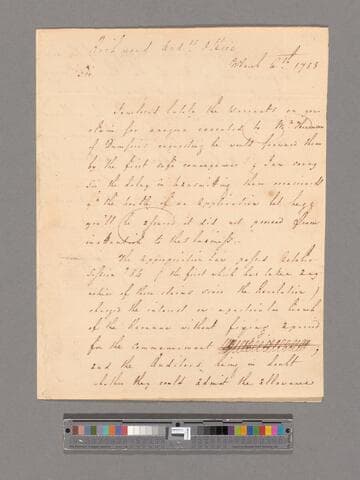 Richmond Aud.rs Office
March 4th 1788
Sir
I enclosed lately the warrants on
claim for arrears executed to Mr
of Dumfries requesting he would forward them
by the first safe conveyance; I am sorry
for the delay in transmitting them
your application but beg
you'll be assured it did not proceed from
inattention to the business.
The Appropriation Law passed October
Session '84 (the first which has taken any
notice of these claims since the Revolution)
charged the interest on a particular branch
of the Revenue without fixing a period
for the commencement
and the Auditors being in doubt
whether they could admit the allowance